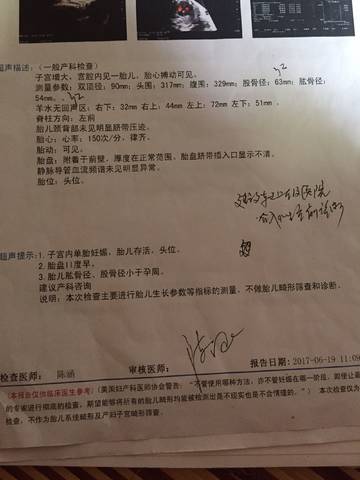 超声描述：（一般产科检查）
子宫增大、宫腔内见一胎儿，胎心搏动可见。
测量参数：双顶径：90mm；头围：317mm；腹围：329mm；股骨径：63mm；肱骨径：
54mm。
羊水无回声区：右下：32mm 右上：44mm 左上：72mm 左下：51mm 。
脊柱方向：左前
胎儿颈背部未见明显脐带压迹。
胎心：心率：150次/分，律齐。
胎动：可见。
胎盘：附着于前壁，厚度在正常范围，胎盘脐带插入口显示不清。
静脉导管血流频谱未见明显异常。
胎位：头位。
超声提示：1.子宫内单胎妊娠，胎儿存活、头位。
2.胎盘II度早。
3.胎儿肱骨径、股骨径小于孕周。
建议产科咨询
说明：本次检查主要进行胎儿生长参数等指标的测量，不做胎儿畸形筛查和诊断。
检查医师： 陈涵 审核医师： 报告日期：2017-06-19 11:09
（本报告仅供临床医生参考）（美国妇产科医师会警告：“不管使用哪种方法，亦不管妊娠在哪一阶段，即使让最
的专家进行彻底的检查，期望能够将所有的胎儿畸形均能被检测出是不现实也是不合情理的。”） 本次检查仅为
检查，不作为胎儿系统畸形及产妇子宫畸形筛查。